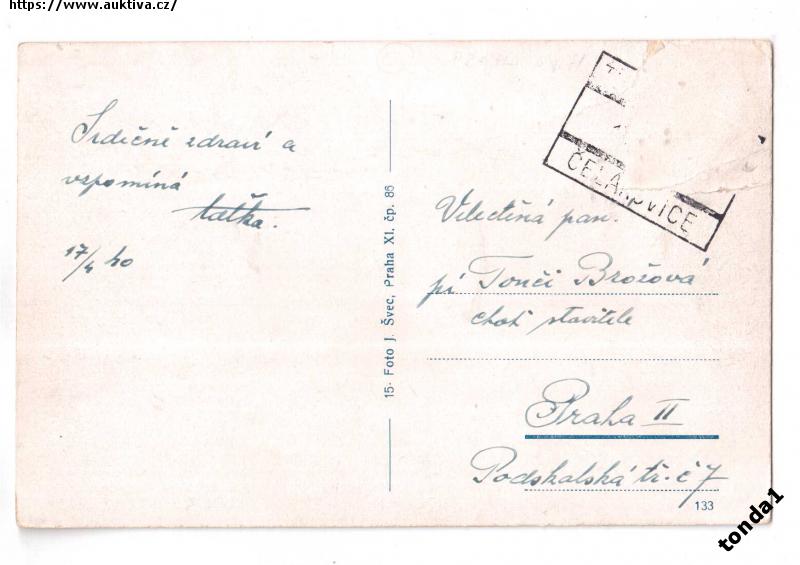 https://www.auktiva.cz/
Srdečně zdraví a
vzpomíná
taťka.
17/4 40
15· Foto J. Švec, Praha XI, čp. 86
ČELÁKOVICE
Velectěná paní
pí Tonči Brožová
choť stavitele
Praha II
Podskalská tř. č 7
133
tonda1